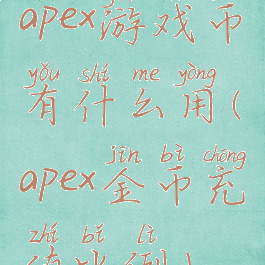 apex游戏币
yǒu shí me yòng
有什么用(
jīn bì chōng
apex金币充
zhí bǐ lì
值比例)